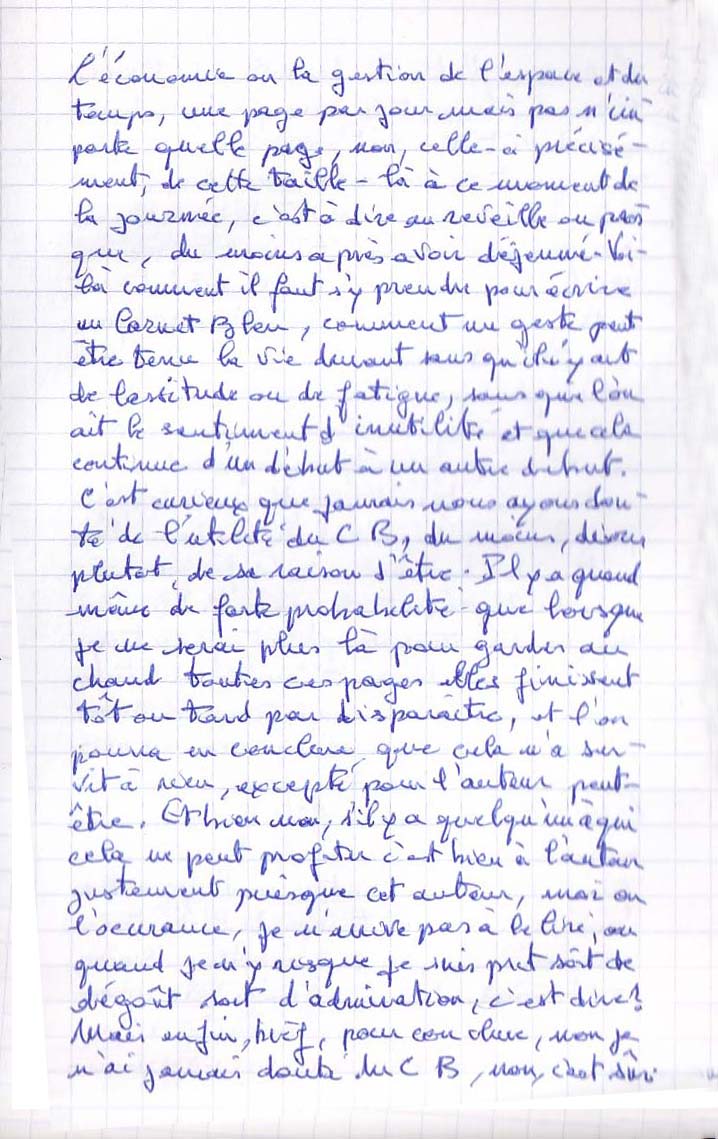 L'économie ou la gestion de l'espace et du
temps, une page par jour mais pas n'im
porte quelle page, non, celle-ci précisé-
ment, de cette taille-là à ce moment de
la journée, c'est à dire au réveille ou pres
que, du moins après avoir déjeuné. Voi-
là comment il faut s'y prendre pour écrire
un Carnet Bleu, comment un geste peut
être tenu la vie durant sans qu'il n'y ait
de lassitude ou de fatigue, sans que l'on
ait le sentiment d'inutilité et que cela
continue d'un début à un autre début.
C'est curieux que jamais nous ayons dou-
té de l'utilité du C B, du moins, disons
plutot, de sa raison d'être. Il y a quand
même de forte probabilité que lorsque
je ne serai plus là pour garder au
chaud toutes ces pages elles finissent
tôt ou tard par disparaître, et l'on
pourra en conclure que cela n'a ser-
vit à rien, excepté pour l'auteur peut-
être. Et bien non, s'il y a quelqu'un à qui
cela ne peut profiter c'est bien à l'auteur
justement puisque cet auteur, moi en
l'occurance, je n'arrive pas à le lire, ou
quand je m'y risque je suis pret soit de
dégoût soit d'admiration, c'est dire!
Mais enfin, bref, pour conclure, non je
n'ai jamais douté du C B, non, c'est sûr.